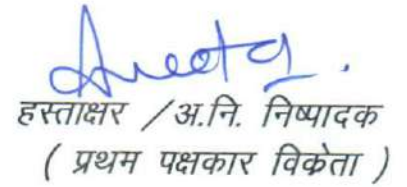 हस्ताक्षर / अ.नि. निष्पादक
( प्रथम पक्षकार विकेता )